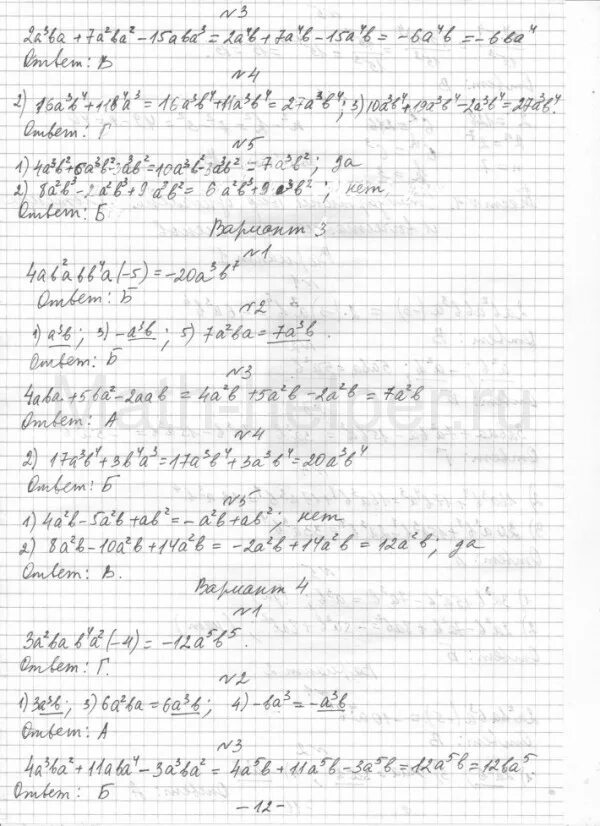 №3
2a³ba + 7a²ba² - 15aba³ = 2a⁴b + 7a⁴b - 15a⁴b = -6a⁴b = -6ba⁴
Ответ: В
№4
2) 16a³b⁴ + 11b⁴a³ = 16a³b⁴ + 11a³b⁴ = 27a³b⁴; 3) 10a³b⁴ + 19a³b⁴ - 2a³b⁴ = 27a³b⁴.
Ответ: Г
№5
1) 4a³b² + 6a³b² - 3a³b² = 10a³b² - 3a³b² = 7a³b²; да
2) 8a²b³ - 2a²b³ + 9a³b² = 6a²b³ + 9a³b²; нет
Ответ: Б
Вариант 3
№1
4ab²abb⁴a(-5) = -20a³b⁷
Ответ: Б
№2
1) a³b; 3) -a³b; 5) 7a²ba = 7a³b.
Ответ: Б
№3
4aba + 5ba² - 2aab = 4a²b + 5a²b - 2a²b = 7a²b
Ответ: А
№4
2) 17a³b⁴ + 3b⁴a³ = 17a³b⁴ + 3a³b⁴ = 20a³b⁴
Ответ: Б
№5
1) 4a²b - 5a²b + ab² = -a²b + ab²; нет
2) 8a²b - 10a²b + 14a²b = -2a²b + 14a²b = 12a²b; да
Ответ: В.
Вариант 4
№1
3a²bab⁴a²(-4) = -12a⁵b⁵.
Ответ: Г.
№2
1) 3a³b; 3) 6a²ba = 6a³b; 4) -ba³ = -a³b
Ответ: А
№3
4a³ba² + 11aba⁴ - 3a³ba² = 4a⁵b + 11a⁵b - 3a⁵b = 12a⁵b = 12ba⁵.
Ответ: Б
- 12 -